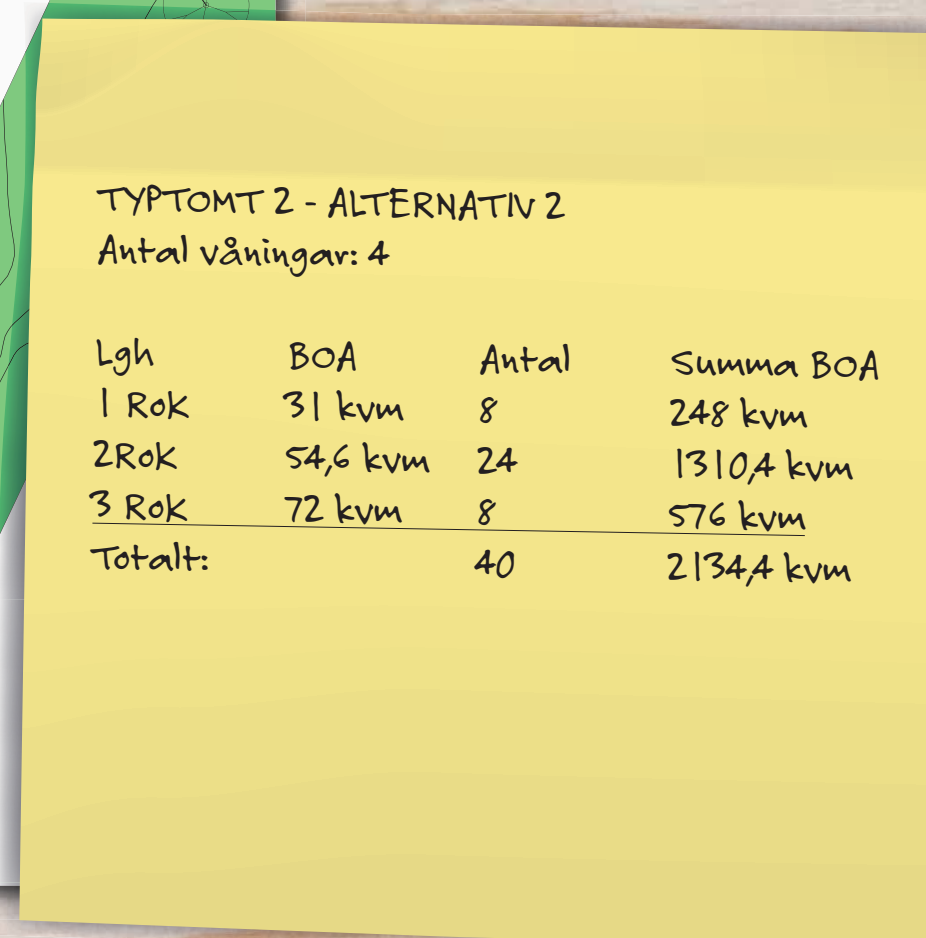 TYPTOMT 2 - ALTERNATIV 2
Antal våningar: 4
Lgh BOA Antal Summa BOA
1 RoK 31 kvm 8 248 kvm
2RoK 54,6 kvm 24 1310,4 kvm
3 RoK 72 kvm 8 576 kvm
Totalt: 40 2134,4 kvm